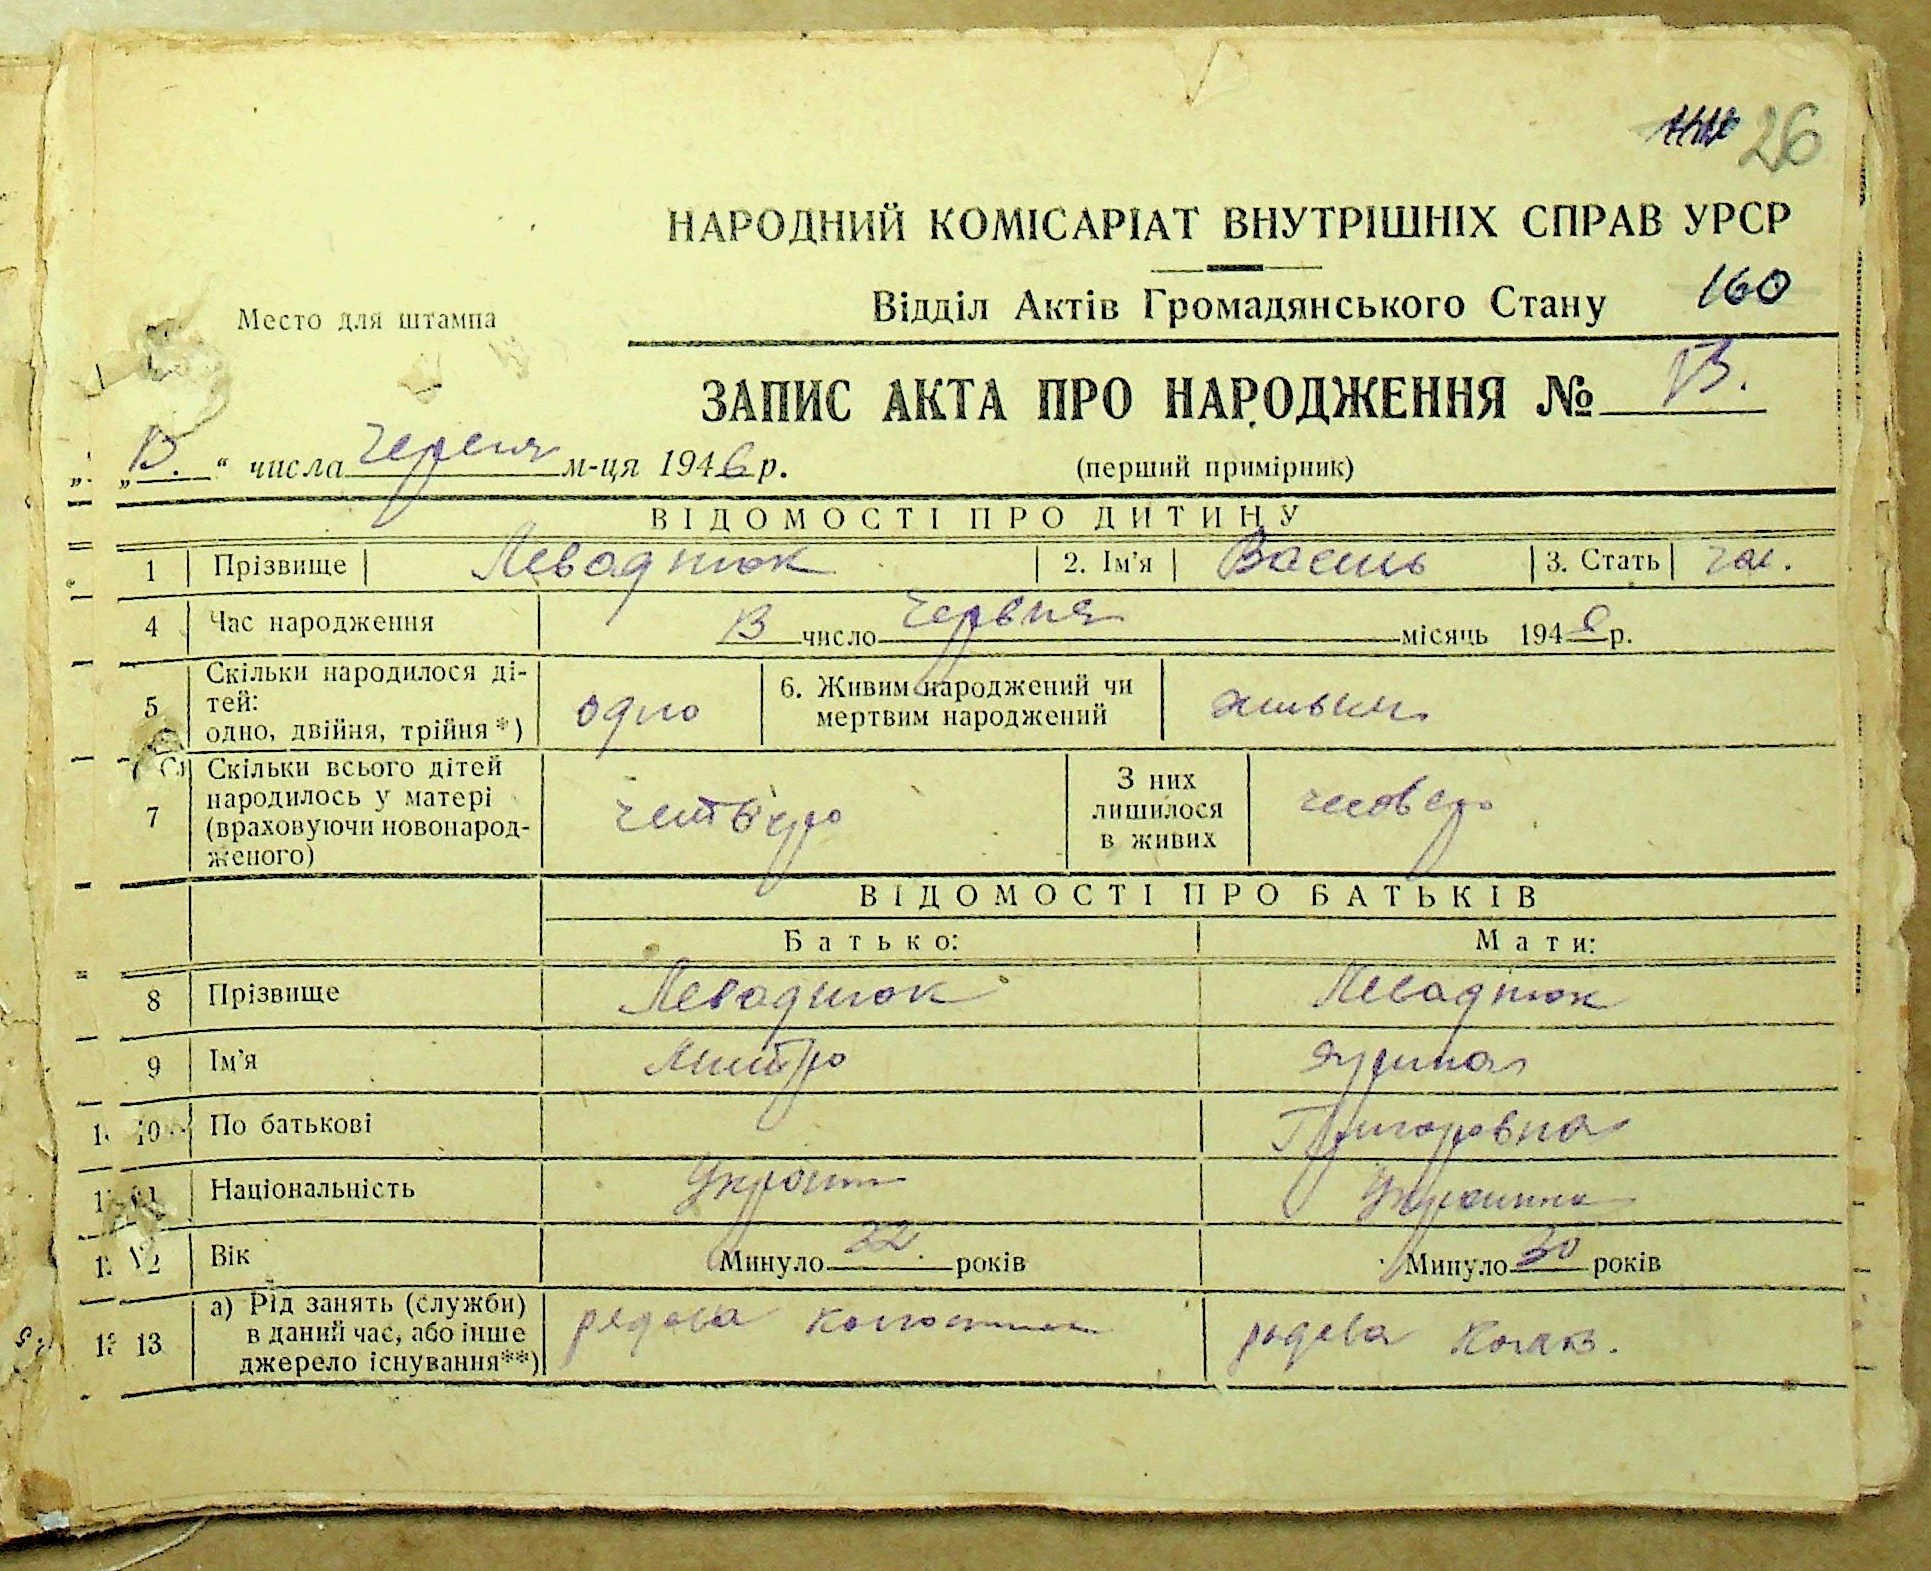 26
НАРОДНИЙ КОМІСАРІАТ ВНУТРІШНІХ СПРАВ УРСР
Место для штампа
Відділ Актів Громадянського Стану 160
ЗАПИС АКТА ПРО НАРОДЖЕННЯ № 13.
„13.“ числа червня м-ця 1946 р. (перший примірник)
ВІДОМОСТІ ПРО ДИТИНУ
1 Прізвище Леваднюк 2. Ім'я Василь 3. Стать чол.
4 Час народження 13 число червня місяць 194 р.
5 Скільки народилося ді-
тей:
одно, двійня, трійня*) одно
6. Живим народжений чи
мертвим народжений живим
7 Скільки всього дітей
народилось у матері
(враховуючи новонарод-
женого)
З них
лишилося
в живих
ВІДОМОСТІ ПРО БАТЬКІВ
Батько: Мати:
8 Прізвище Леваднюк Леваднюк
9 Ім'я Дмитро Ярина
10 По батькові Григоровна
11 Національність Украінн Украинка
12 Вік Минуло 22. років Минуло 30 років
13 а) Рід занять (служби)
в даний час, або інше
джерело існування**)
рядова рядова колхоз.